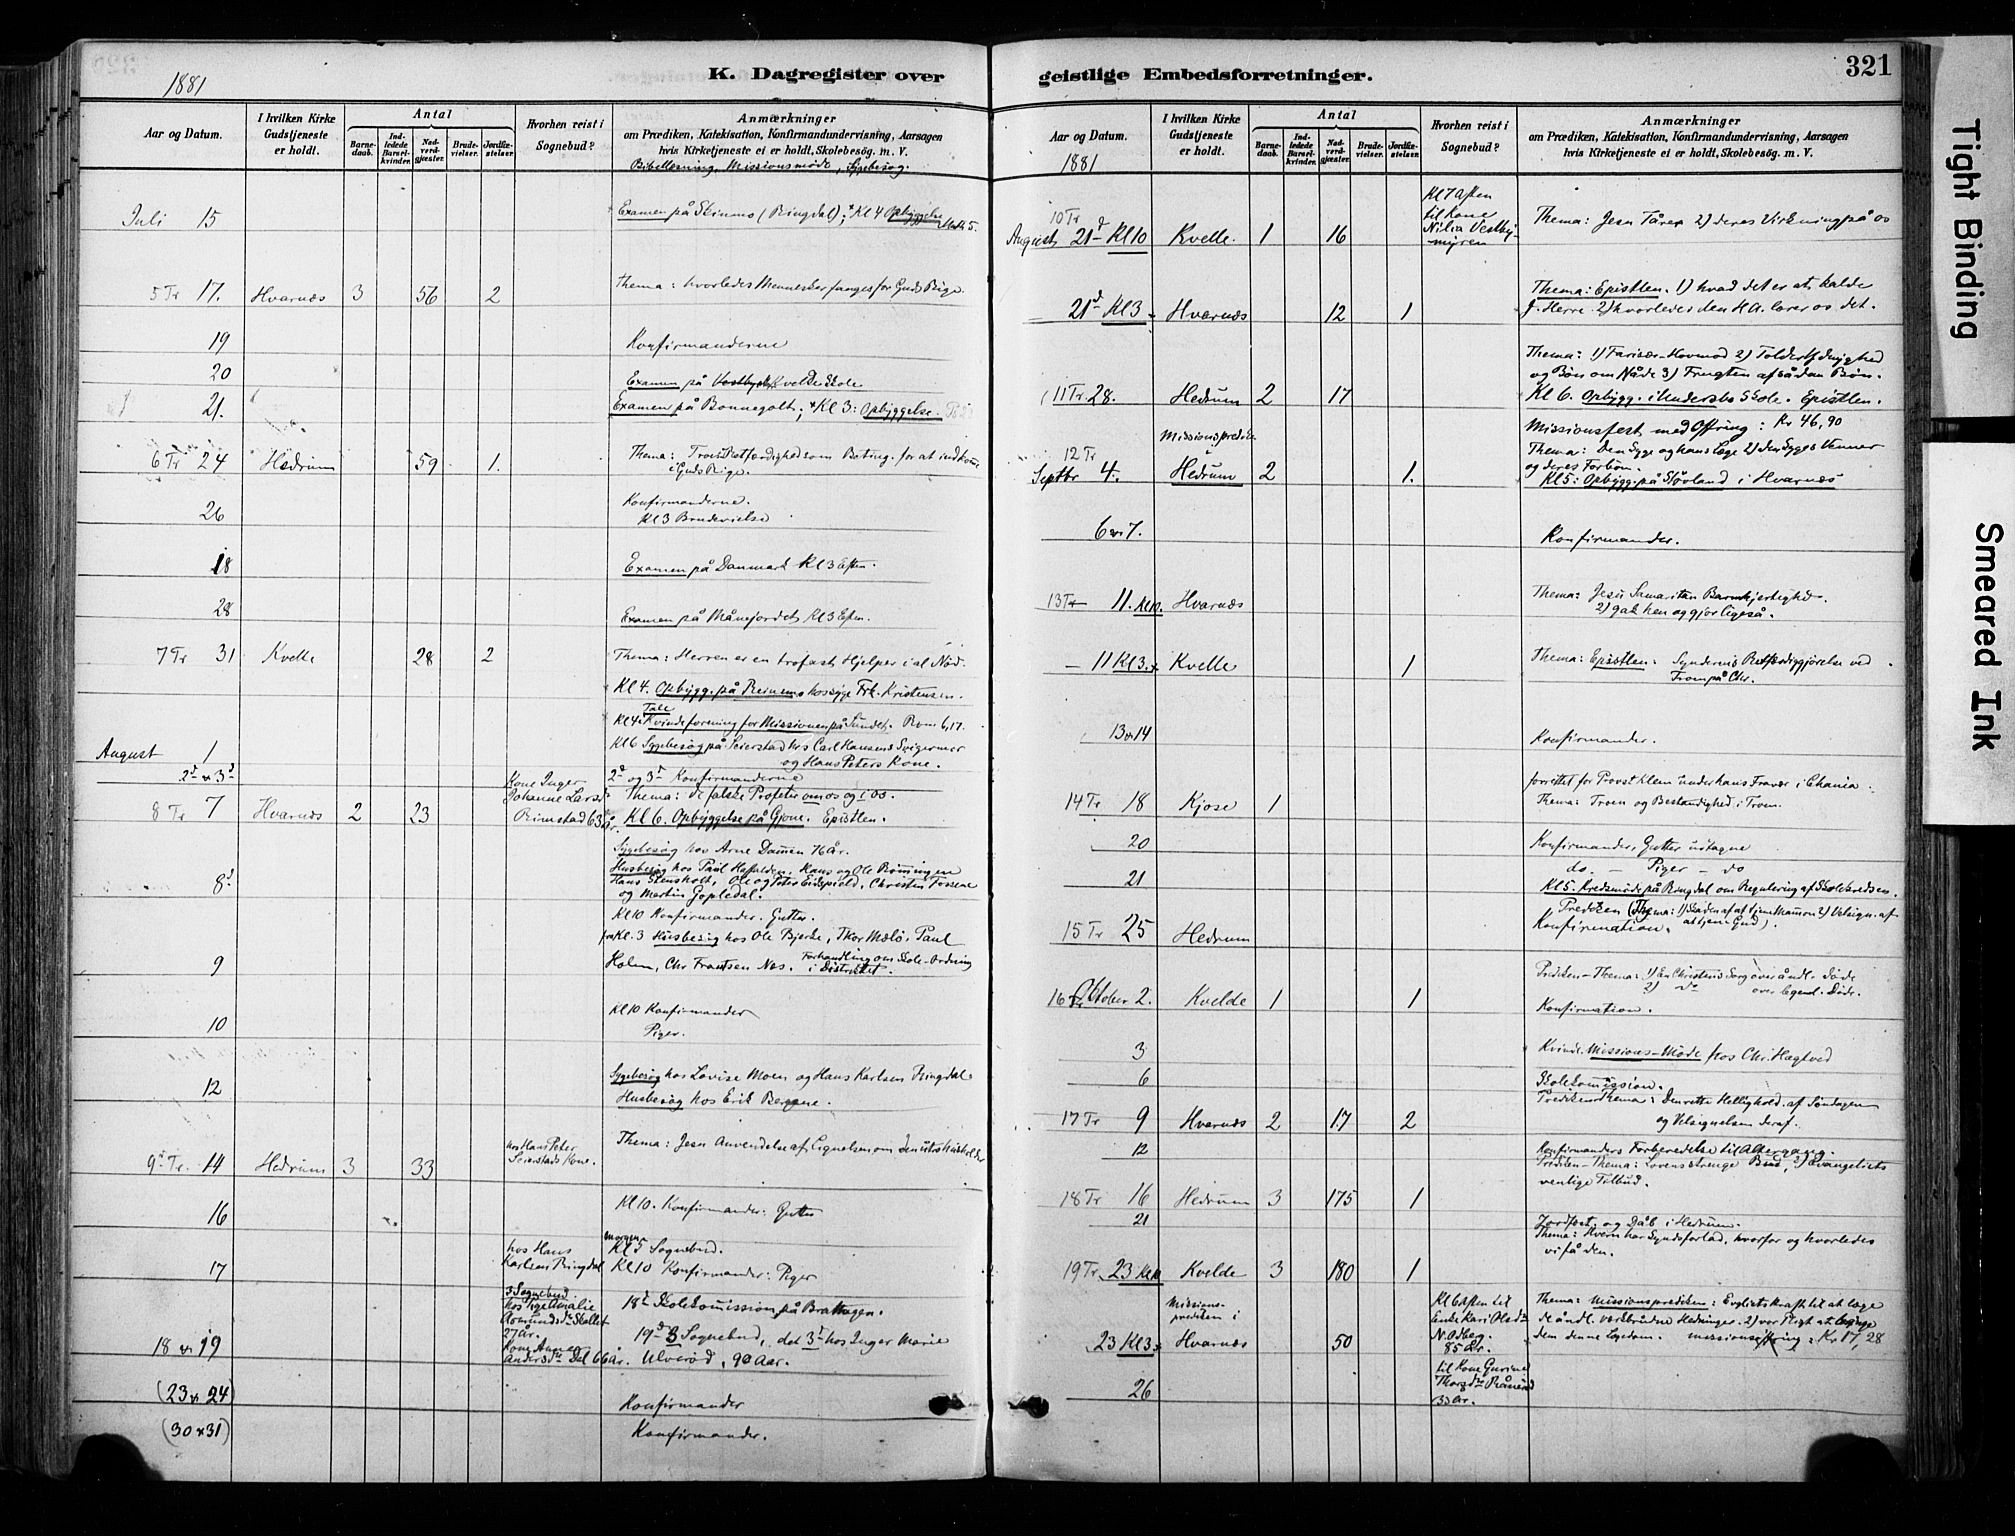 1881
K. Dagregister over
Aar og Datum.
I hvilken Kirke Gudstjeneste er holdt.
Antal
Barnedaab.
Indledede Barselkvinder.
Nadverdgjester.
Brudevielser.
Jordfæstelser.
Hvorhen reist i Sognebud?
Anmærkninger
om Prædiken, Katekisation, Konfirmandundervisning, Aarsagen
hvis Kirketjeneste ei er holdt, Skolebesög. m. V.
Bibellæsning, Missionsmöde, Sygebesög.
Juli 15 Examen på (Ringdal); Kl 4 Opbyggelse Math 5.
5 Tr 17. Hvarnæs 3 56 2 Thema: hvorledes Mennesker fanges for Guds Rige.
19 Konfirmanderne
20 Examen på Kvelde Skole
21. Examen på Bonnegolt; Kl 3: Opbyggelse.
6 Tr 24 Hedrum 59 1. Thema: som Beting. for at indkom.
i Guds Rige.
26 Konfirmanderne.
Kl 3 Brudevielse
18 Examen på Danmark Kl 3 Eften.
28 Examen på Månejordet Kl 3 Eften.
7 Tr 31 Kvelle 28 2 Thema: Herren er en trofast Hjelper i al Nöd.
Kl 4. Opbygg. på hos syge Frk. Kristensen.
Tale
Kl 4 Kvindeforening for Missionen på Sundet. Rom 6, 17.
August 1 Kl 6 Sygebesög på Seierstad hos Carl Hansens Svigermor
og Hans Peters Kone.
2d & 3d 2d og 3d Konfirmanderne
8 Tr 7 Hvarnæs 2 23 Kone Inger
Johanne Larsd.
Rimstad 63 År.
Thema: de falske Profeter om os og i os.
Kl 6. Opbyggelse på Gjone. Epistlen.
8d Sygebesög hos Arne Dammen 76 år.
Husbesög hos Paul Hans og Ole Rönningen
Hans Stensholt, Ole og Peter Eidspjeld, Christen Fossene
og Martin Gopledal.
Kl 10 Konfirmander. Gutter.
9 fra Kl. 3 Husbesög hos Ole Bjerke, Thor Mælö, Paul
Holm, Chr Frantsen Næs. Forhandling om Skole-Ordning
i Distriktet.
10 Kl 10 Konfirmander
Piger.
12 Sygebesög hos Lovise Moen og Hans Karlsen Ringdal.
Husbesög hos Erik Bergene.
9 Tr. 14 Hedrum 3 33 hos Hans Peter
Seierstads Kone.
Thema: Jesu Anvendelse af Lignelsen om den utro Husholder
16 Kl 10. Konfirmander: Gutter
17 hos Hans
Karlsen Ringdal
morgen
Kl 5 Sognebud.
Kl 10 Konfirmander: Piger
18 & 19 3 Sognebud
hos Pige Amalie
Asmundsd.
27 År.
Kone
Andersd. Dal 66 år.
18d Skolekomission på Brathagen.
19d 3 Sognebud, det 3d hos Inger Marie
Ulverød, 90 Aar.
(23 & 24) Konfirmander
(30 & 31) Konfirmander.
geistlige Embedsforretninger.
321
Aar og Datum.
I hvilken Kirke Gudstjeneste er holdt.
Antal
Barnedaab.
Indledede Barselkvinder.
Nadverdgjester.
Brudevielser.
Jordfæstelser.
Hvorhen reist i Sognebud?
Anmærkninger
om Prædiken, Katekisation, Konfirmandundervisning, Aarsagen
hvis Kirketjeneste ei er holdt, Skolebesög. m. V.
1881
10 Tr
August 21d Kl 10 Kvelle. 1 16 Kl 7 Aften
til Kone
Nilia Vestby-
myren
Thema: Jesu Tårer 2) deres Virkning på os
21d Kl 3 Hvarnæs 12 1 Thema: Epistlen. 1) hvad det er at kalde
J. Herre 2) hvorledes den H A. lærer os det.
11 Tr. 28. Hedrum 2 17 Thema: 1) Farisær-Hovmod 2) Tolder Ydmyghed
og Bön om Nåde 3) Frugten af sådan Bön.
Kl 6. Opbygg. i Undersbo Skole. Epistlen.
Missionsfest med Offring: Kr 46, 90
12 Tr
Septbr 4. Missionspredik. Hedrum 2 1. Thema: Den Syge og hans Læge 2) den Syges Venner
og deres Forbön.
Kl 5: Opbygg. på Stövland i Hvarnæs
6 & 7. Konfirmander.
13 Tr 11. Kl 10. Hvarnæs Thema: Jesu Samaritan Barmhjertighed.
2) gak hen og gjör ligeså.
11 Kl 3. Kvelle 1 Thema: Epistlen: Synderens Retfærdiggjörelse ved
Troen på Chr.
13 & 14 Konfirmander.
14 Tr 18 Kjose 1 forrettet for Provst Klem under hans Fravær i Chania.
Thema: Troen og Bestandighed i Troen.
20 Konfirmander, Gutter udtagne
21 do. - Piger - do
Kl 5. Kredsmöde på Ringdal om Regulering af Skolekredsen.
15 Tr 25 Hedrum Prediken (Thema: 1) Skaden af at tjene Mamon 2) Velsign. af
at tjene Gud).
Konfirmation.
16 Tr Oktober 2. Kvelde 1 1 Prediken-Thema: 1) En Christens Sorg over åndl. Döde
2) do over legeml. Döde.
Konfirmation.
3 Kvinde. Missions-Möde hos Chr. Hagtved
6 Skolekomission.
17 Tr 9 Hvarnæs 2 17 2 Prediken Thema: Den rette Hellighold. af Söndagen
og Velsignelsen deraf.
12 Konfirmanders Forberedelse til Altergang.
18 Tr 16 Hedrum 3 175 1 Prediken-Thema: Lovens strenge Bud, 2) Evangeliets
venlige Tilbud.
21 Jordfæst. og Dåb i Hedrum.
19 Tr. 23 Kl 10 Kvelde 3 180 1 Thema: Hvem har Syndsforlad., hvorfor og hvorledes
vi få den.
23 Kl 3. Missions-
prediken i
Hvarnæs 50 Kl 6 Aften til
Enke Kari Olsd.
N. Odberg.
85 År.
Thema: Missionsprediken: Evgliets Kraft til at læge
de åndl. verkbrudne Hedninger. 2) vor Pligt at bringe
dem denne Lægdom. Missionsoffring: Kr 17, 28
26 til Kone Gurine
Thorsd.
33 år.
Tight Binding
Smeared Ink